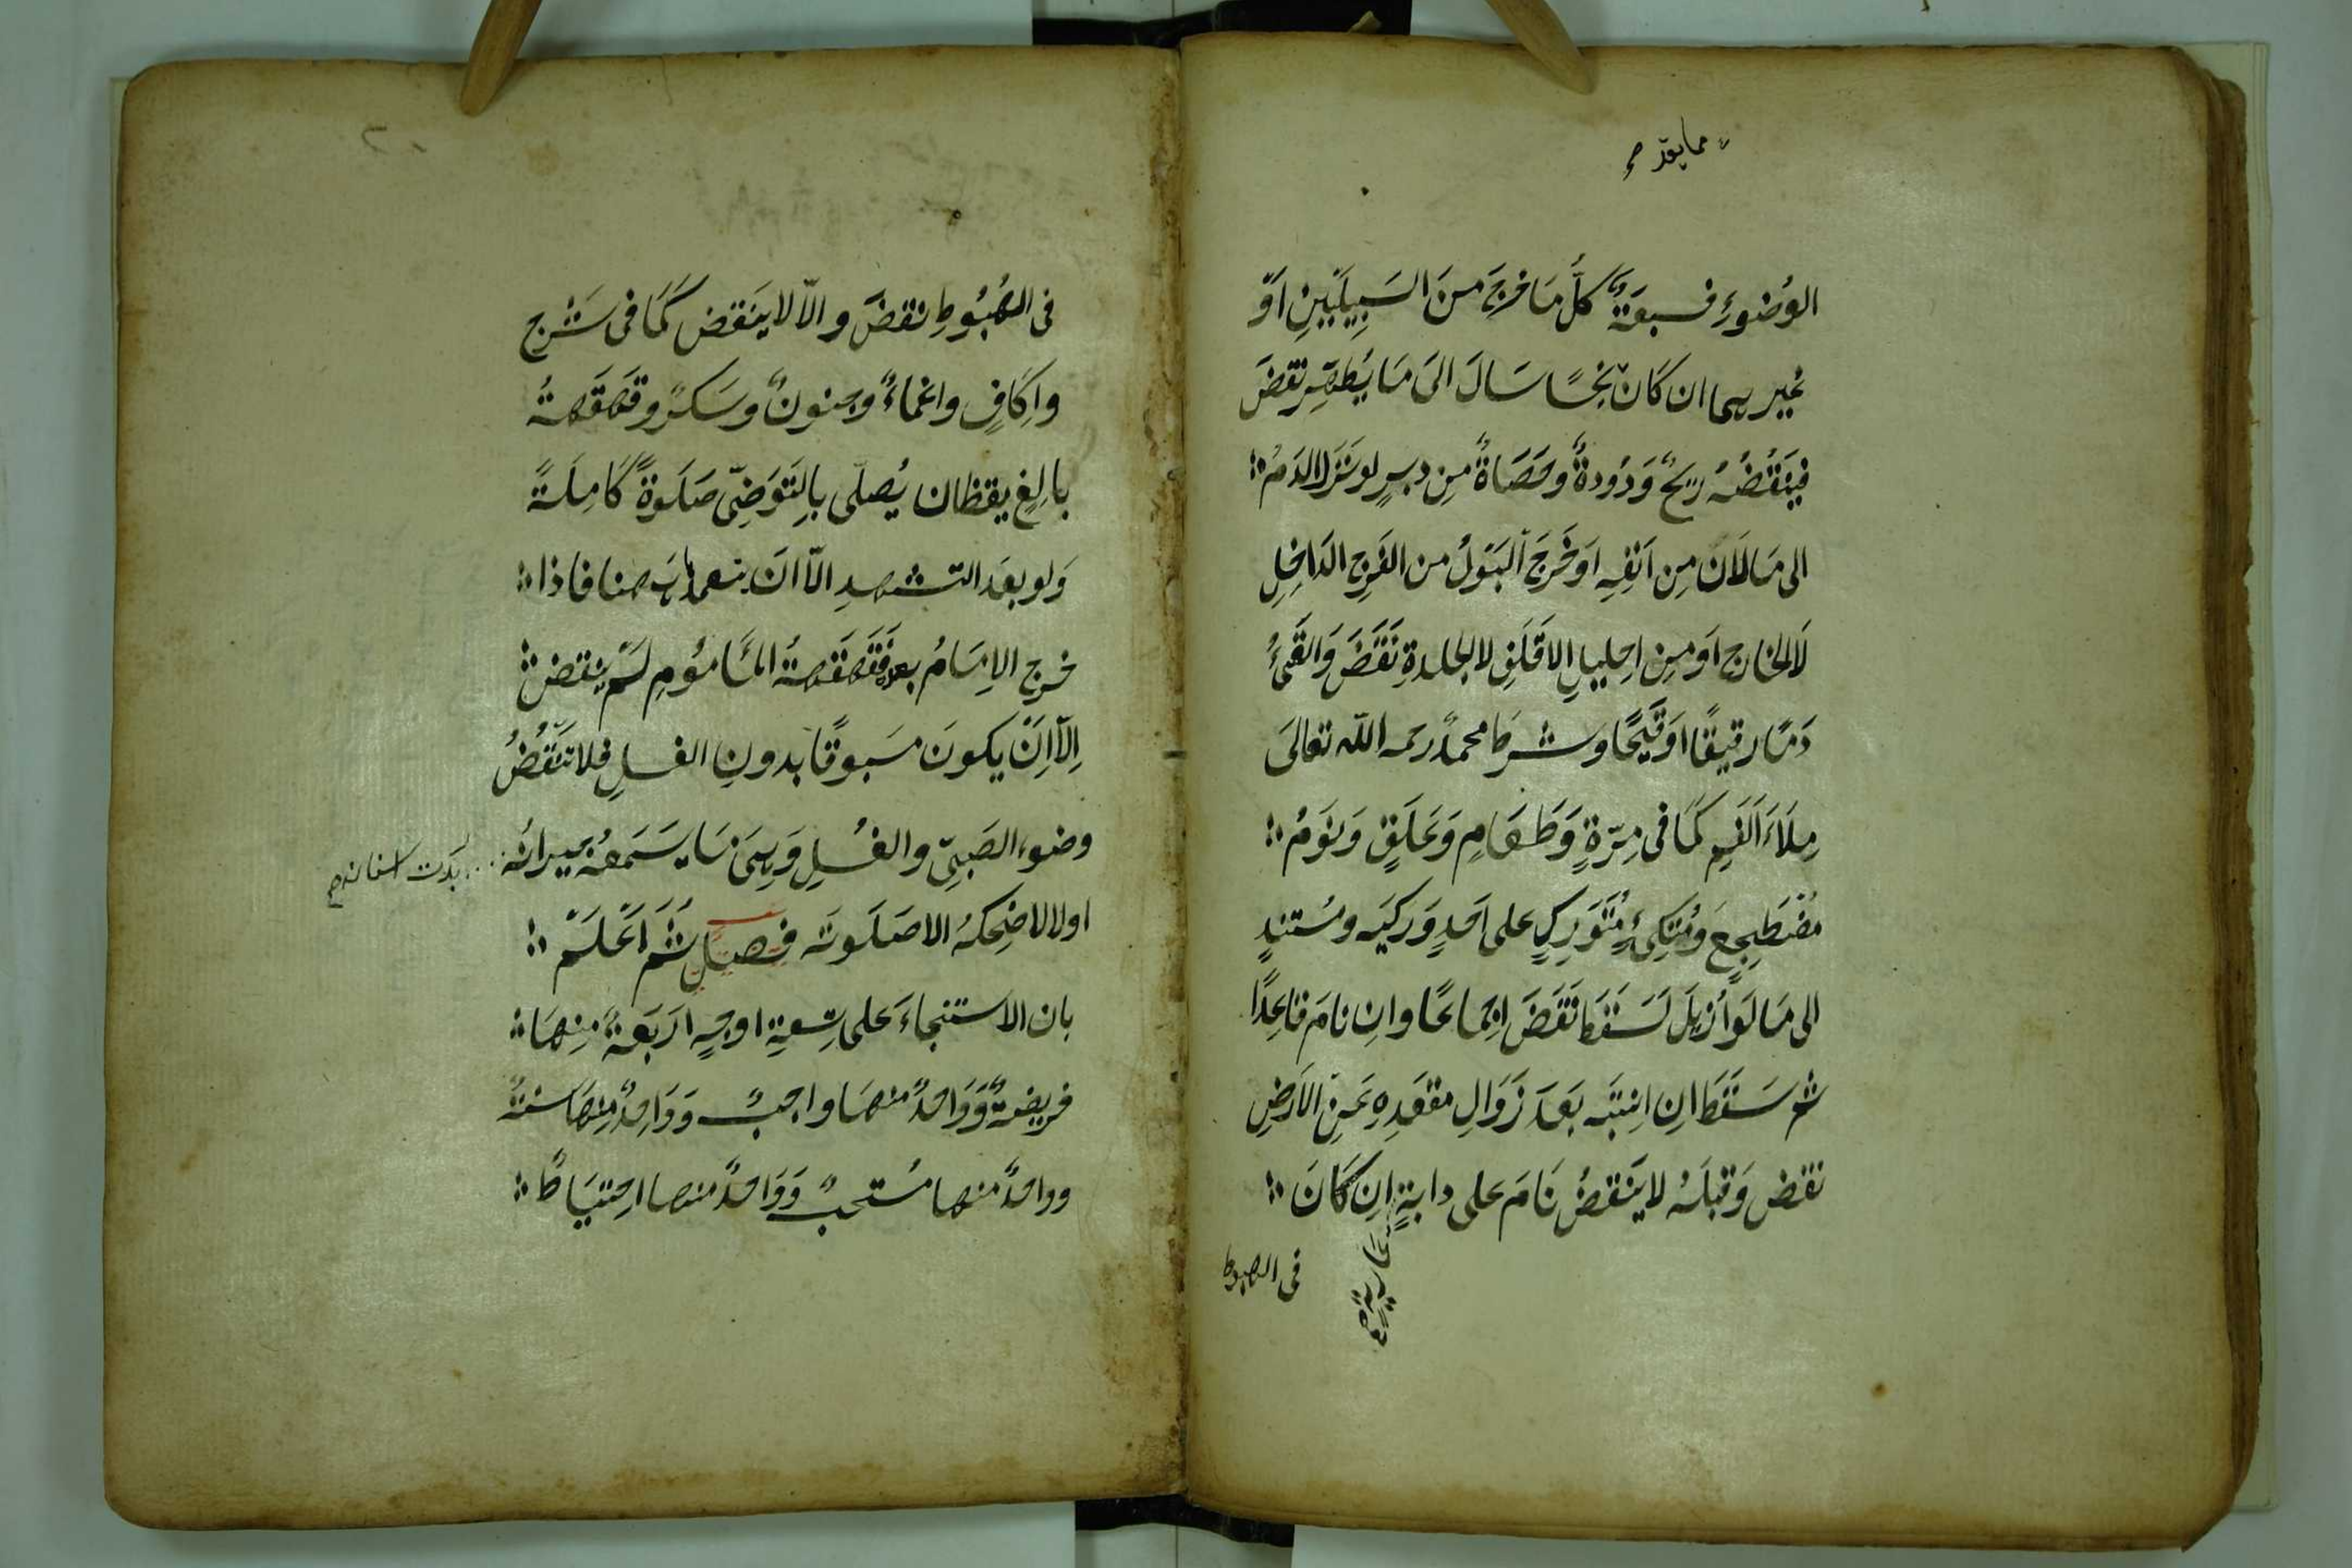 مما يقدم
الوُضوءِ فسبعَةٌ كلُّ مَا خرَجَ مِنَ السَبِيلَيْنِ اَوْ
غيرهما ان كَانَ نجسًا سَالَ الىَ مَا يُطهَّر نقضَ
فينَقُضُهُ ريحٌ وَدُودةٌ وحَصَاةٌ مِن دبرٍ لو نَزَلَ الدَمُ
الى مَا لَانَ مِن اَنْفِهِ اوَخَرَجَ البَوْلُ من الفَرْجِ الدَاخِلِ
لَا الخارج اوَ مِن اِحليلِ الاَقلَفِ لا لجلدةِ نَقَضَ وَالقَئُ
دَمًا رقيقًا اوَ قَيْحًا وشرطَ محمدٌ رحمه اللّه تعالىَ
مِلَاءَ اَلفَمِ كمَا فى مِرّةٍ وَطَعَامٍ وَعَلَقٍ وَنوَمُ
مضْطَجِعٍ وَمُتكِئٍ مُتَوَرِكٍ على اَحدٍ وَركيَه ومُستندٍ
الى مَا لَوْ اُزيلَ لَسَقَطَ نَقَضَ اِجماعًا وان نامَ قاعِدًا
ثم سَقَطَ اِن اِنتبَه بَعدَ زَوَالِ مقعَدِهِ عَنِ الاَرضِ
نقض وَقبلَهُ لا ينَقضُ نَامَ على دابةٍ اِن كَانَ
عارية صح
فى الهبوط
فى الهُبُوطِ نقضَ والاّ لا ينَقض كَمَا فى شَرْج
واِكَافٍ واغماءٌ وجنونٌ وسَكرٌ وقهقَهةُ
بالِغٍ يقظان يُصلّى بالِتَوَضِّى صَلَوةً كَامِلَةً
وَلو بعَد التشهدِ الاّ انَ يتعمد هنا فاذا
خرج الاِمَامُ بعده فقهقهةُ المَامُومِ لَمْ ينقض
اِلاّ اَنْ يكونَ مسَبوقًا بدونِ الغسلِ فلا تنَقُضُ
وضوء الصَبِىّ والغُسلِ وَيسِمَى مَا يسَمَعُهُ جيرانُه
بَدَت اسنانه صح
اولا لا ضِحكهُ الا صَلَوتَه فصل ثُمَّ اَعْلَمْ
بان الاَستنجاءَ على تِسعةِ اوجهٍ اَربَعةٌ مِنهَا
فريضةٌ وَوَاحدٌ منهَا واجبٌ وَوَاحِدٌ مِنهَا سنةٌ
وواحدٌ منها مُستحبٌ وَوَاحدٌ منها احِتيَاطٌ